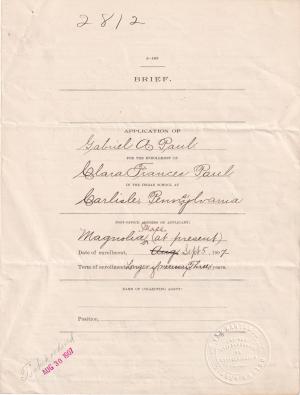 2812
5-192
BRIEF.
APPLICATION OF
Gabriel A Paul
FOR THE ENROLLMENT OF
Clara Frances Paul
IN THE INDIAN SCHOOL AT
Carlisle Pennsylvania
POST-OFFICE ADDRESS OF APPLICANT:
Magnolia Mass (at present)
Date of enrollment, Aug Sept 5, 1907
Term of enrollment, Three years.
NAME OF COLLECTING AGENT:
Position,
AUG 30 1907